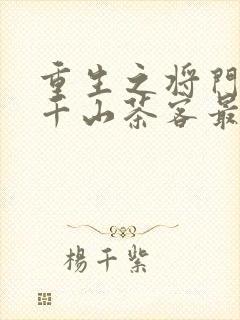 重生之将门
千山茶客最
楊千紫